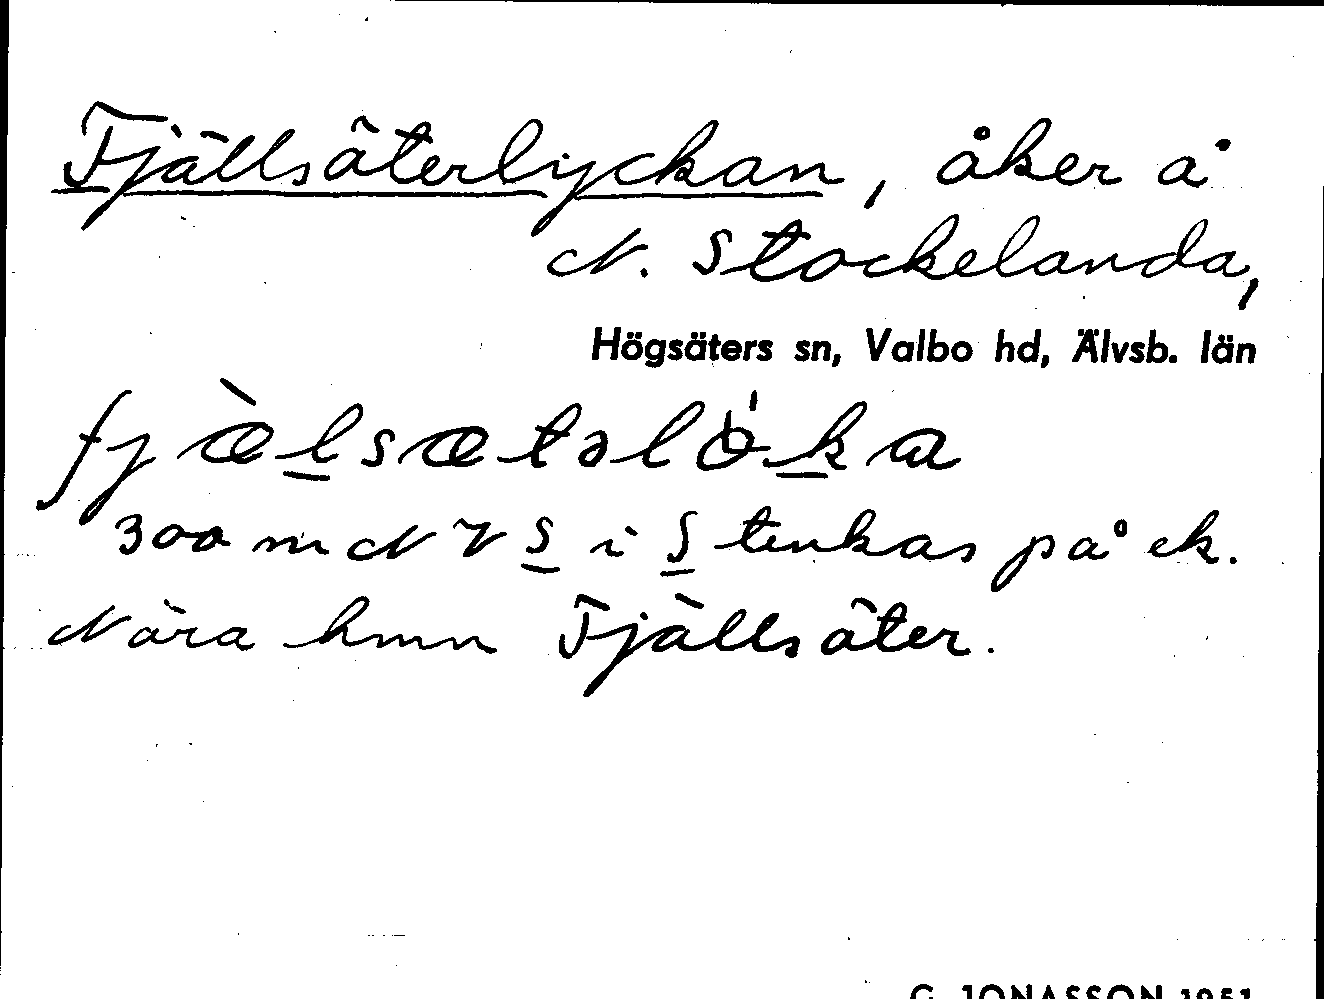 Fjällsäterlyckan, åker å
N. Stockelanda,
Högsäters sn, Valbo hd, Älvsb. län
fjæ̀l̲sætəlǿk̲a
300 m N V S̲ i S̲tenkas på ek.
Nära hmn Fjällsäter.
G. JONASSON 1951